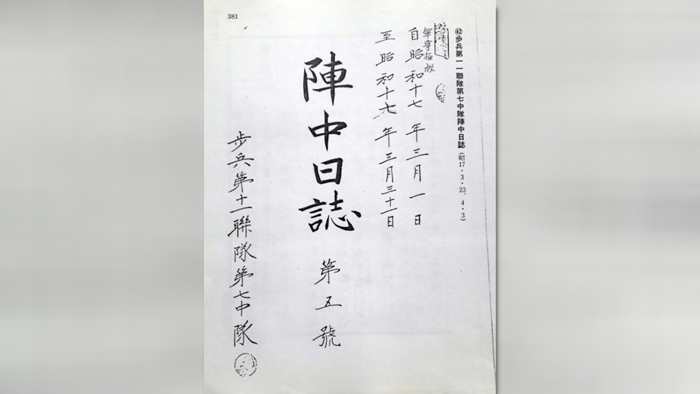 381
㊷歩兵第一一聯隊第七中隊陣中日誌(昭17・3・23、4・3)
軍事極秘
自昭和十七年三月一日
至昭和十七年三月三十一日
陣中日誌 第五號
步兵第十一聯隊第七中隊